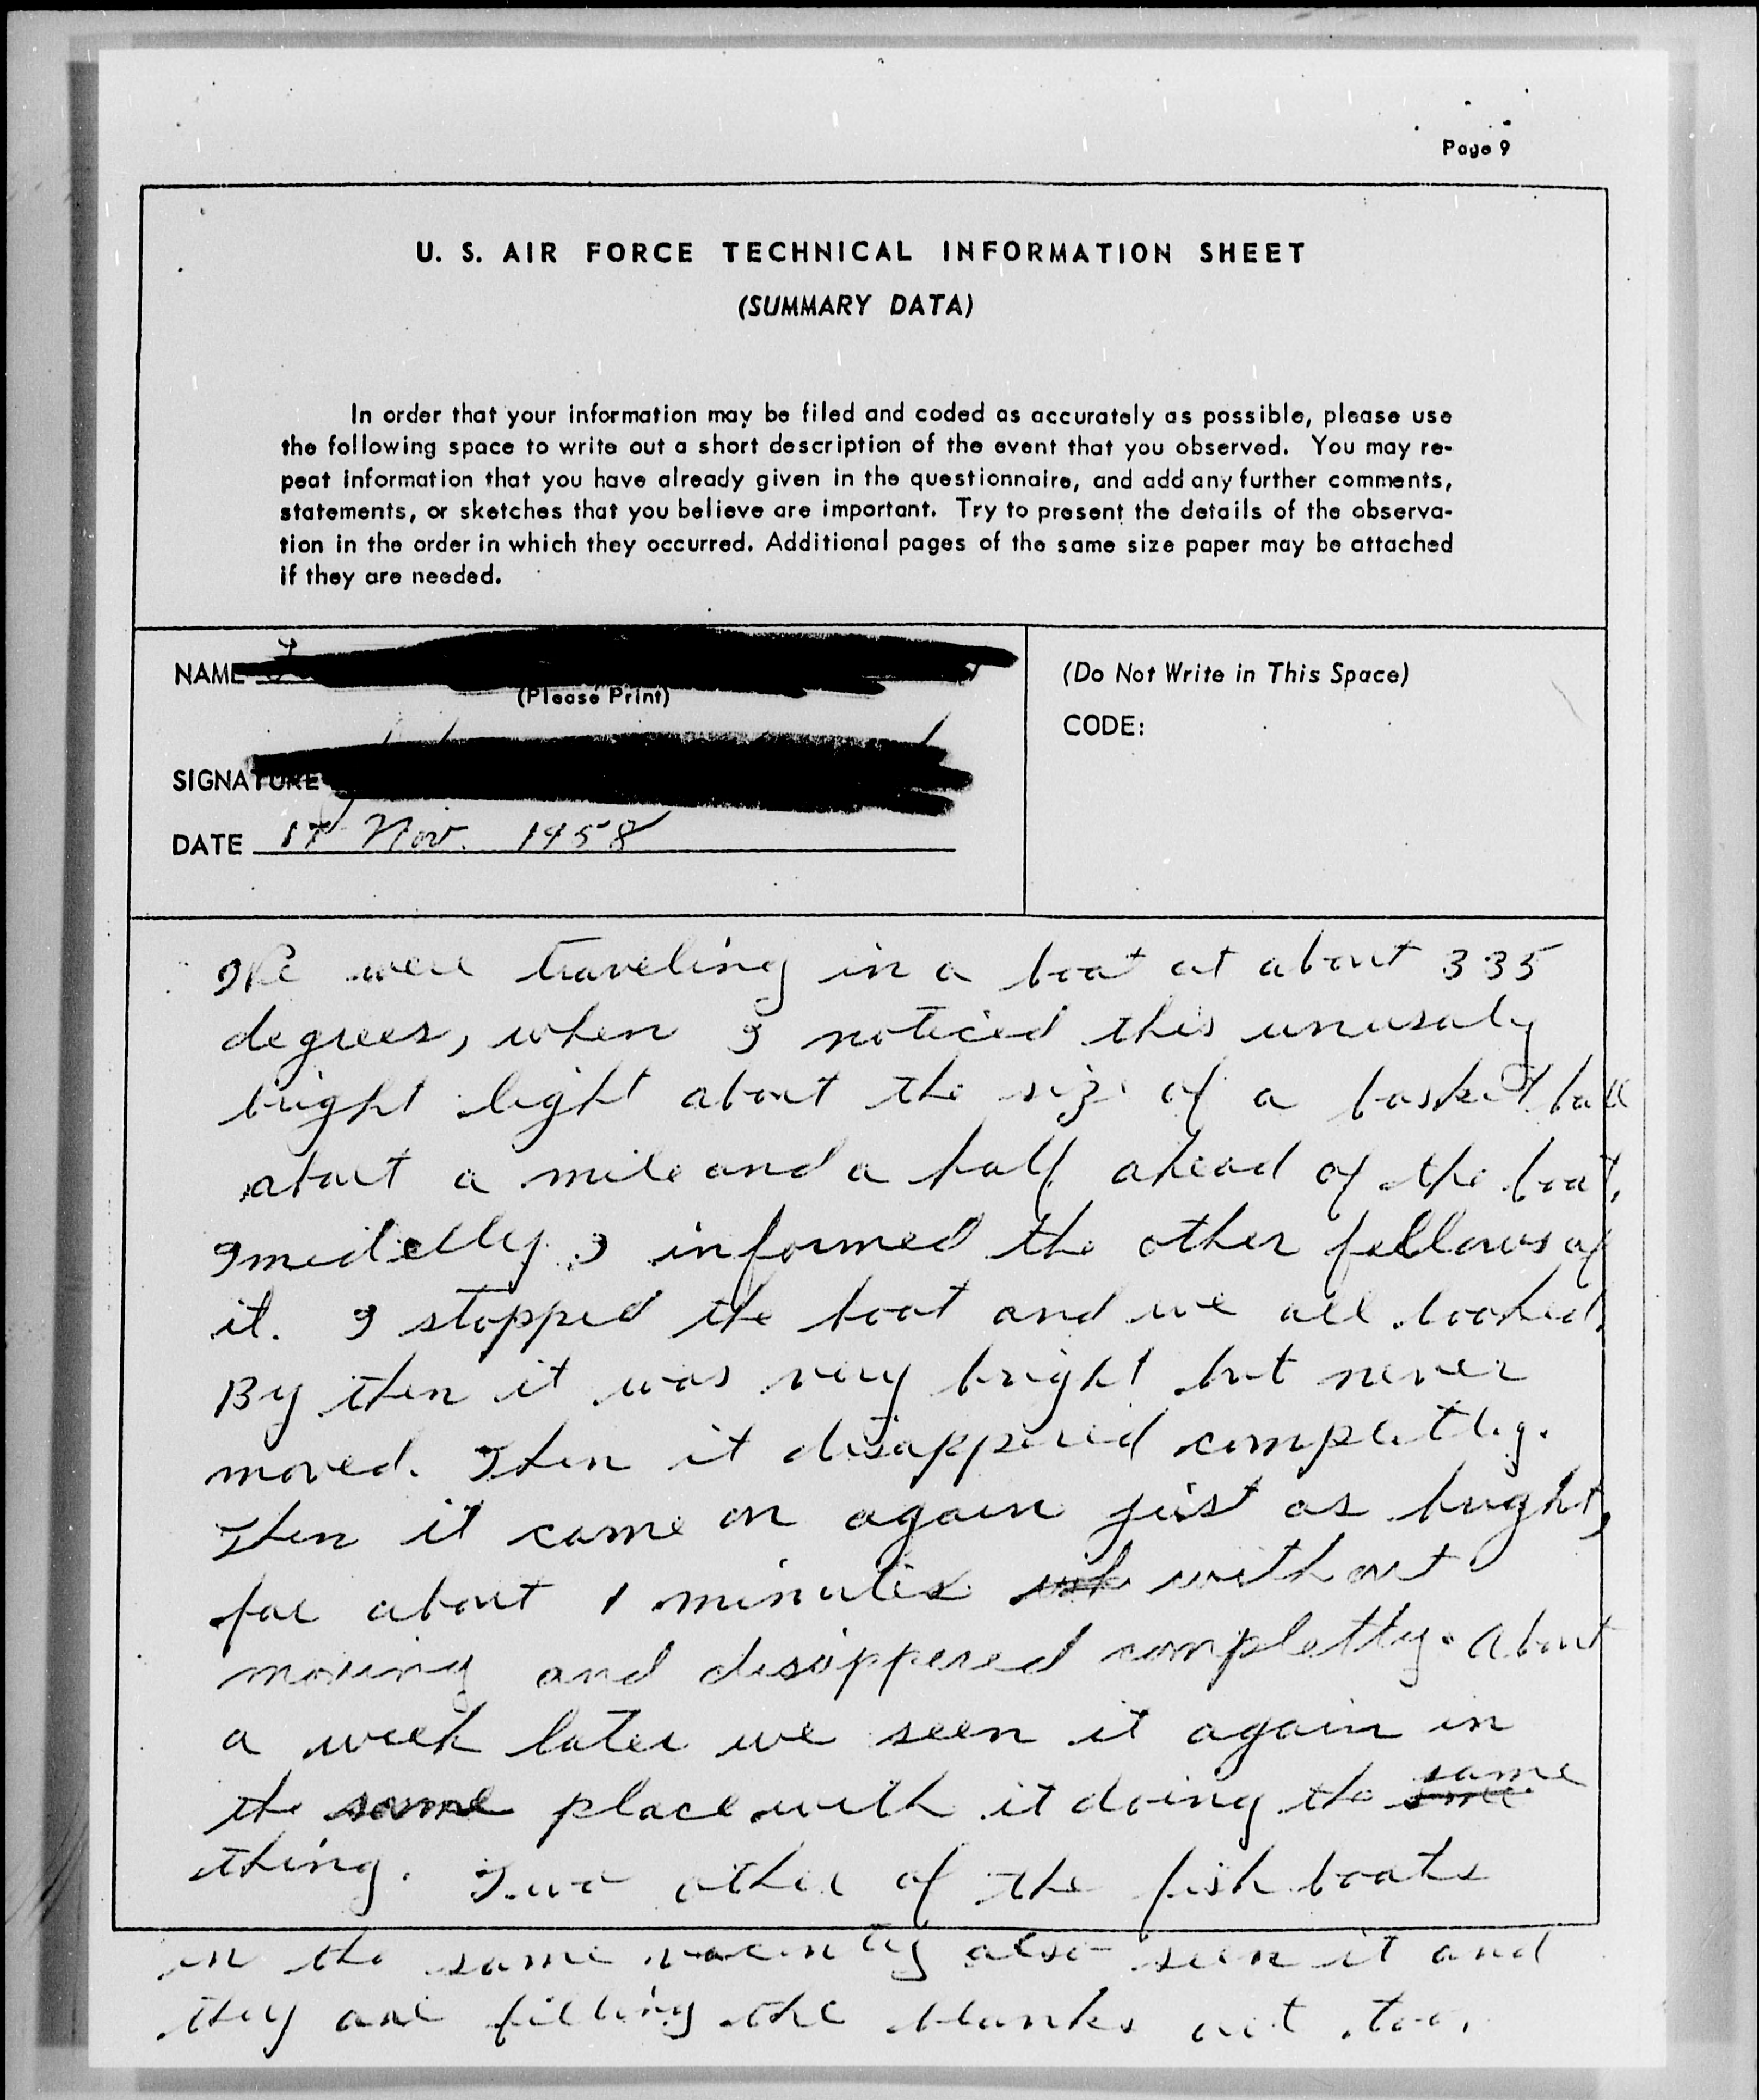 Page 9
U. S. AIR FORCE TECHNICAL INFORMATION SHEET
(SUMMARY DATA)
In order that your information may be filed and coded as accurately as possible, please use
the following space to write out a short description of the event that you observed. You may re-
peat information that you have already given in the questionnaire, and add any further comments,
statements, or sketches that you believe are important. Try to present the details of the observa-
tion in the order in which they occurred. Additional pages of the same size paper may be attached
if they are needed.
NAME
(Please Print)
(Do Not Write in This Space)
CODE:
SIGNATURE
DATE Nov. 1958
We were traveling in a boat at about 335
degrees, when I noticed this unusaly
bright light about the size of a basket ball
about a mile and a half ahead of the boat.
Imedietlly I informed the other fellows of
it. I stopped the boat and we all looked.
By then it was very bright but never
moved. Then it disappered completly.
Then it came on again just as bright,
for about 1 minutes without
moving and disappered completly. About
a week later we seen it again in
the same place with it doing the same
thing. Two other of the fish boats
in the same vacinity also seen it and
they are filling the blanks out too.